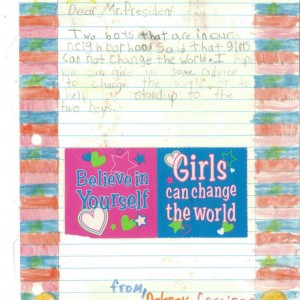 Dear Mr. President
Two boys that are in our
neighborhood Said that girls
can not change the world. I hope
you can give us some advice
to change the
help standup to the
two boys.
Believe in
Yourself
Girls
can change
the world
from,